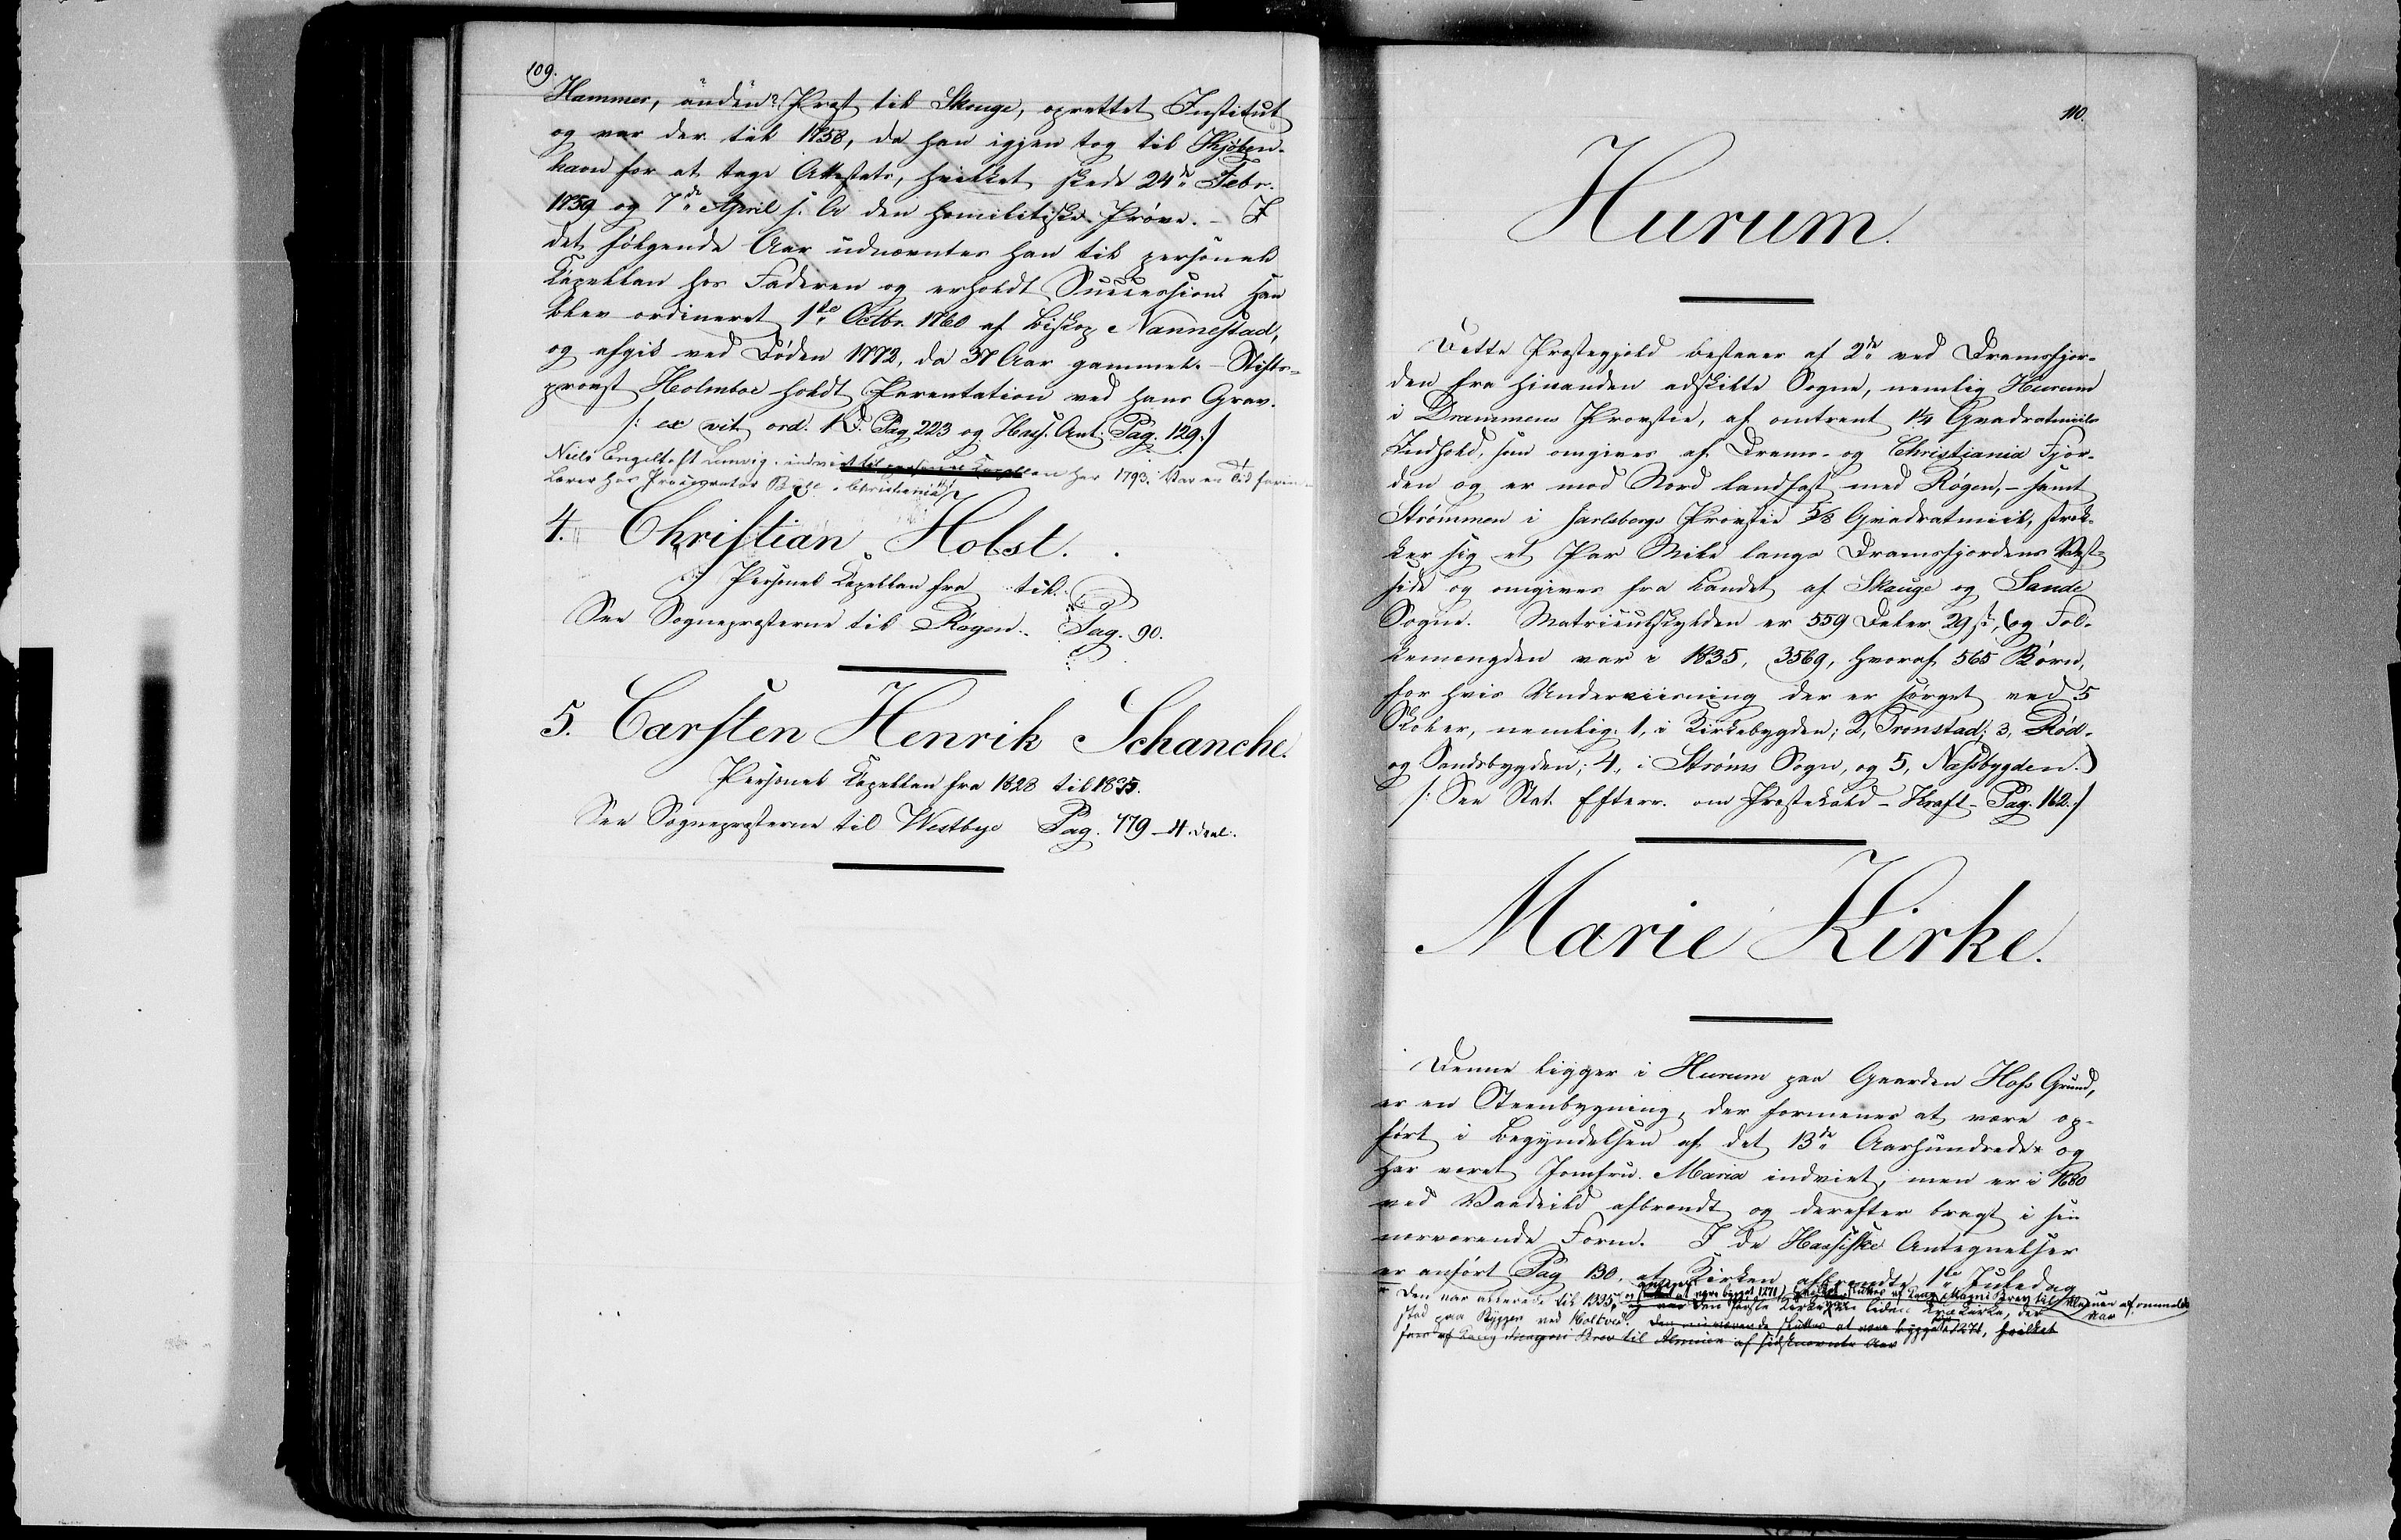 109.
Hammer, anden Præst til Skouge, oprettet Institut
og var der til 1758, da han igjen tog til Kjøben-
havn for at tage Attestats, hvilket skede 24de Febr.
1759 og 7de April s. A. den homiletiske Prøve. - I
det følgende Aar udnævntes han til personel
Capellan hos Faderen og erholdt Succession. Han
blev ordineret 1ste Octbr. 1760 af Biskop Nannestad,
og afgik ved Døden 1772, da 37 Aar gammel. - Stifts-
provst Holmboe holdt Parentation ved hans Grav.
/: ex vit. ord. 1 D. Pag. 223 og Hass. Ant. Pag. 129:/
Niels Engeltoft Lemvig, indviet til personel Capellan her 1793. Var en Tid forin
Lærer hos Procurator Bull i Christiania
4. Christian Holst.
Personel Capellan fra til
See Sognepræsterne til Røgen. Pag. 90.
5. Carsten Henrik Schanche.
Personel Capellan fra 1828 til 1835.
See Sognepræsterne til Westbye Pag. 479 - 4. Deel.
110.
Hurum.
Dette Præstegjeld bestaaer af 2de ved Dramsfjor-
den fra hinanden adskilte Sogne, nemlig Hurum
i Drammens Provstie, af omtrent 1 1/4 Qvadratmiils
Indhold, som omgives af Drams- og Christiania Fjor-
den og er mod Nord landfast med Røgen, - samt
Strømmen i Jarlsbergs Provstie 5/8 Qvadratmiil, stræk-
ker sig et Par Mile langs Dramsfjordens Vest-
side og omgives fra Landet af Skouge og Sande
Sogne. Matriculskylden er 559 Daler 29 s, og Fol-
kemængden var i 1835, 3569, hvoraf 565 Børn,
for hvis Underviisning der er sørget ved 5
Skoler, nemlig: 1, i Kirkebygden; 2, Tronstad; 3, Rød-
og Sandsbygden; 4, i Strøms Sogn, og 5, Næsbygden.
/: See Stat. Efterr. om Præstekald - Kraft - Pag. 162:/
Marie Kirke.
Denne ligger i Hurum paa Gaarden Hofs Grund,
er en Steenbygning, der formenes at være op-
ført i Begyndelsen af det 13de Aarhundrede* og
har været Jomfru Maria indviet, men er i 1680
ved Vaadeild afbrændt og derefter bragt i sin
nærværende Form. I de Hassiske Antegnelser
er anført Pag. 130, at Kirken afbrændte 1ste Juledag
* Den var allerede til 1335, og at være bygget 1271, hvilket sluttes af Kong Magni Brev til Almuen af ommeldte Aar
og var den første Kirke en liden Trækirke, der
stod paa Byggen ved Holtvet. Den nuværende sluttes at være bygget 1271, hvilket
sees af Kong Magni Brev til Almuen af sidstnævnte Aar